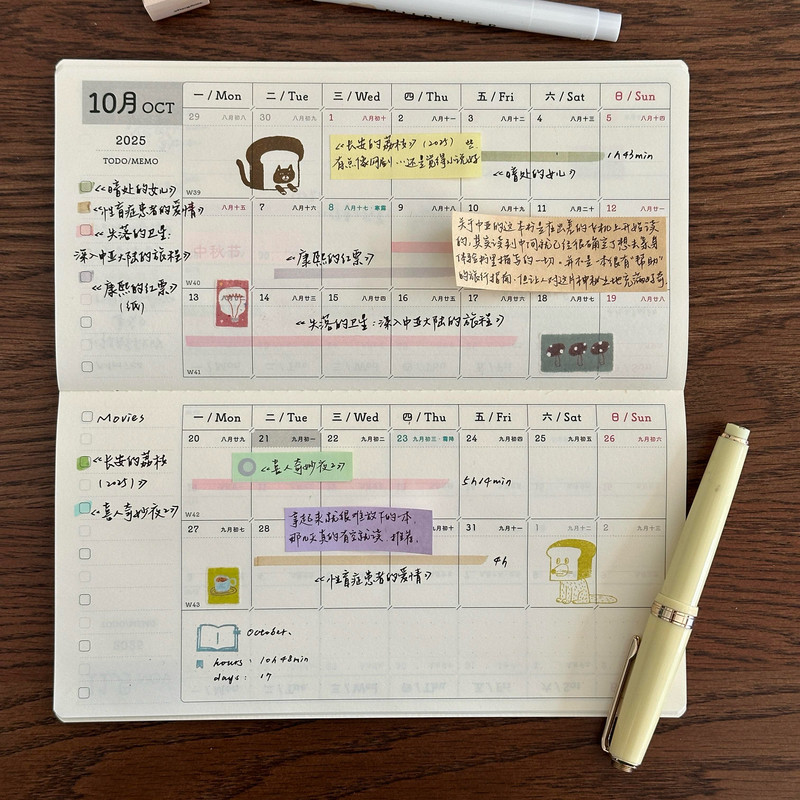 10月 OCT
2025
TODO/MEMO
《暗处的女儿》
《性育症患者的爱情》
《失落的卫星:
深入中亚大陆的旅程》
《康熙的红票》
(纸)
一 / Mon 二 / Tue 三 / Wed 四 / Thu 五 / Fri 六 / Sat 日 / Sun
29 八月初八 30 八月初九 1 八月初十 2 八月十一 3 八月十二 4 八月十三 5 八月十四
《长安的荔枝》(2025)
有点像网剧 还是觉得小说好
《暗处的女儿》
1h43min
W39
八月十五 7 八月十六 8 八月十七·寒露 9 八月十八 10 11 12
中秋节
《康熙的红票》
关于中亚的这本书是在出差的飞机上开始读
的,其实读到中间就已经很确定了想去亲身
体验书里描写的一切,并不是一本很有"帮助"
的旅行指南,但让人对这片神秘土地充满好奇.
13 14 15 16 17 18 19 八月廿八
《失落的卫星:深入中亚大陆的旅程》
W41
Movies
《长安的荔枝
(2025)》
《喜人奇妙夜2》
一 / Mon 二 / Tue 三 / Wed 四 / Thu 五 / Fri 六 / Sat 日 / Sun
20 八月廿九 21 九月初一 22 九月初二 23 九月初三·霜降 24 九月初四 25 九月初五 26 九月初六
《喜人奇妙夜2》
5h14min
W42
27 九月初七 28 31 九月十一 1 九月十二 2 九月十三
拿起来就很难放下的一本,
那几天真的有空就读,推荐.
4h
《性育症患者的爱情》
W43
1 October.
hours: 10h48min
days: 17